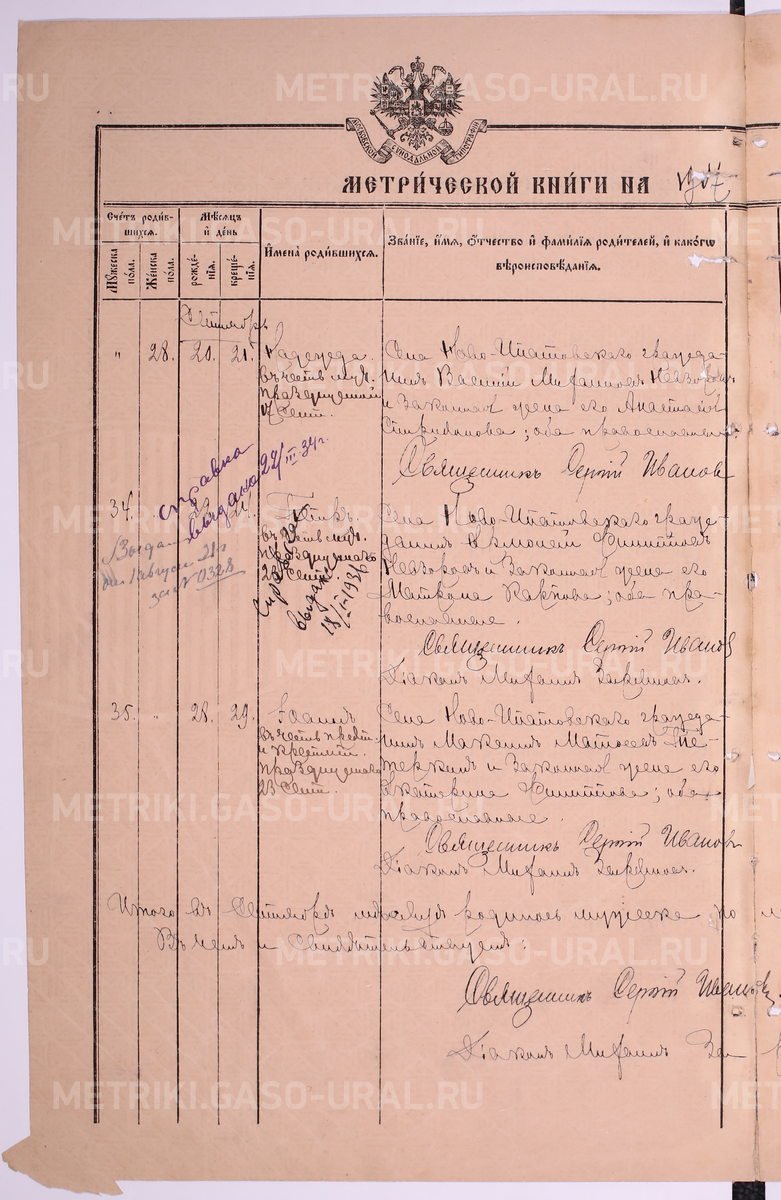 METRIKI.GASO-URAL.RU
МОСКОВСКОЙ СУНОДАЛЬНОЙ ТИПОГРАФІИ
МЕТРИ́ЧЕСКОЙ КНИ́ГИ НА
Сче́тъ роди́вшихся.
Мѣ́сяцъ и҆ де́нь
Му́жеска по́ла.
Же́нска по́ла.
рожде́нїѧ.
креще́нїѧ.
И҆мена̀ роди́вшихся.
Зва́нїе, и҆́мѧ, ѻ҆́тчество и҆ фами́лїѧ роди́телей, и҆ како́гѡ вѣроисповѣ́данїѧ.
Сентябрь
" 28. 20. 21. Надежда.
въ честь муч.
празднуемой
17 Сент.
Села Ново-Ипатовскаго гражда-
нинъ Василій
и законная жена его Анастасія
Спиридонова; оба православные.
Священникъ Сергій Иванов
справка
выдана 22/III 34 г.
34.
Выдан
1 августа 21 г
за № 0328
въ честь муч.
празднуемаго
Сент.
Справка
выдана
18/I-1936
Села Ново-Ипатовскаго граж-
данинъ
и законная жена его
Карпова; оба пра-
вославные.
Священникъ Сергій Иванов
Діаконъ Михаилъ
35. " 28. 29. Іоаннъ
въ честь предт.
и крестит.
празднуемаго
23 Сент.
Села Ново-Ипатовскаго гражда-
нинъ Матѳеевъ
и законная жена его
Екатерина Никитина; оба
православные.
Священникъ Сергій Иванов
Діаконъ Михаилъ
Итого въ Сентябрѣ мѣсяцѣ родилось мужеска по
Въ чемъ и свидѣтельствуемъ:
Священникъ Сергій Иванов
Діаконъ Михаилъ